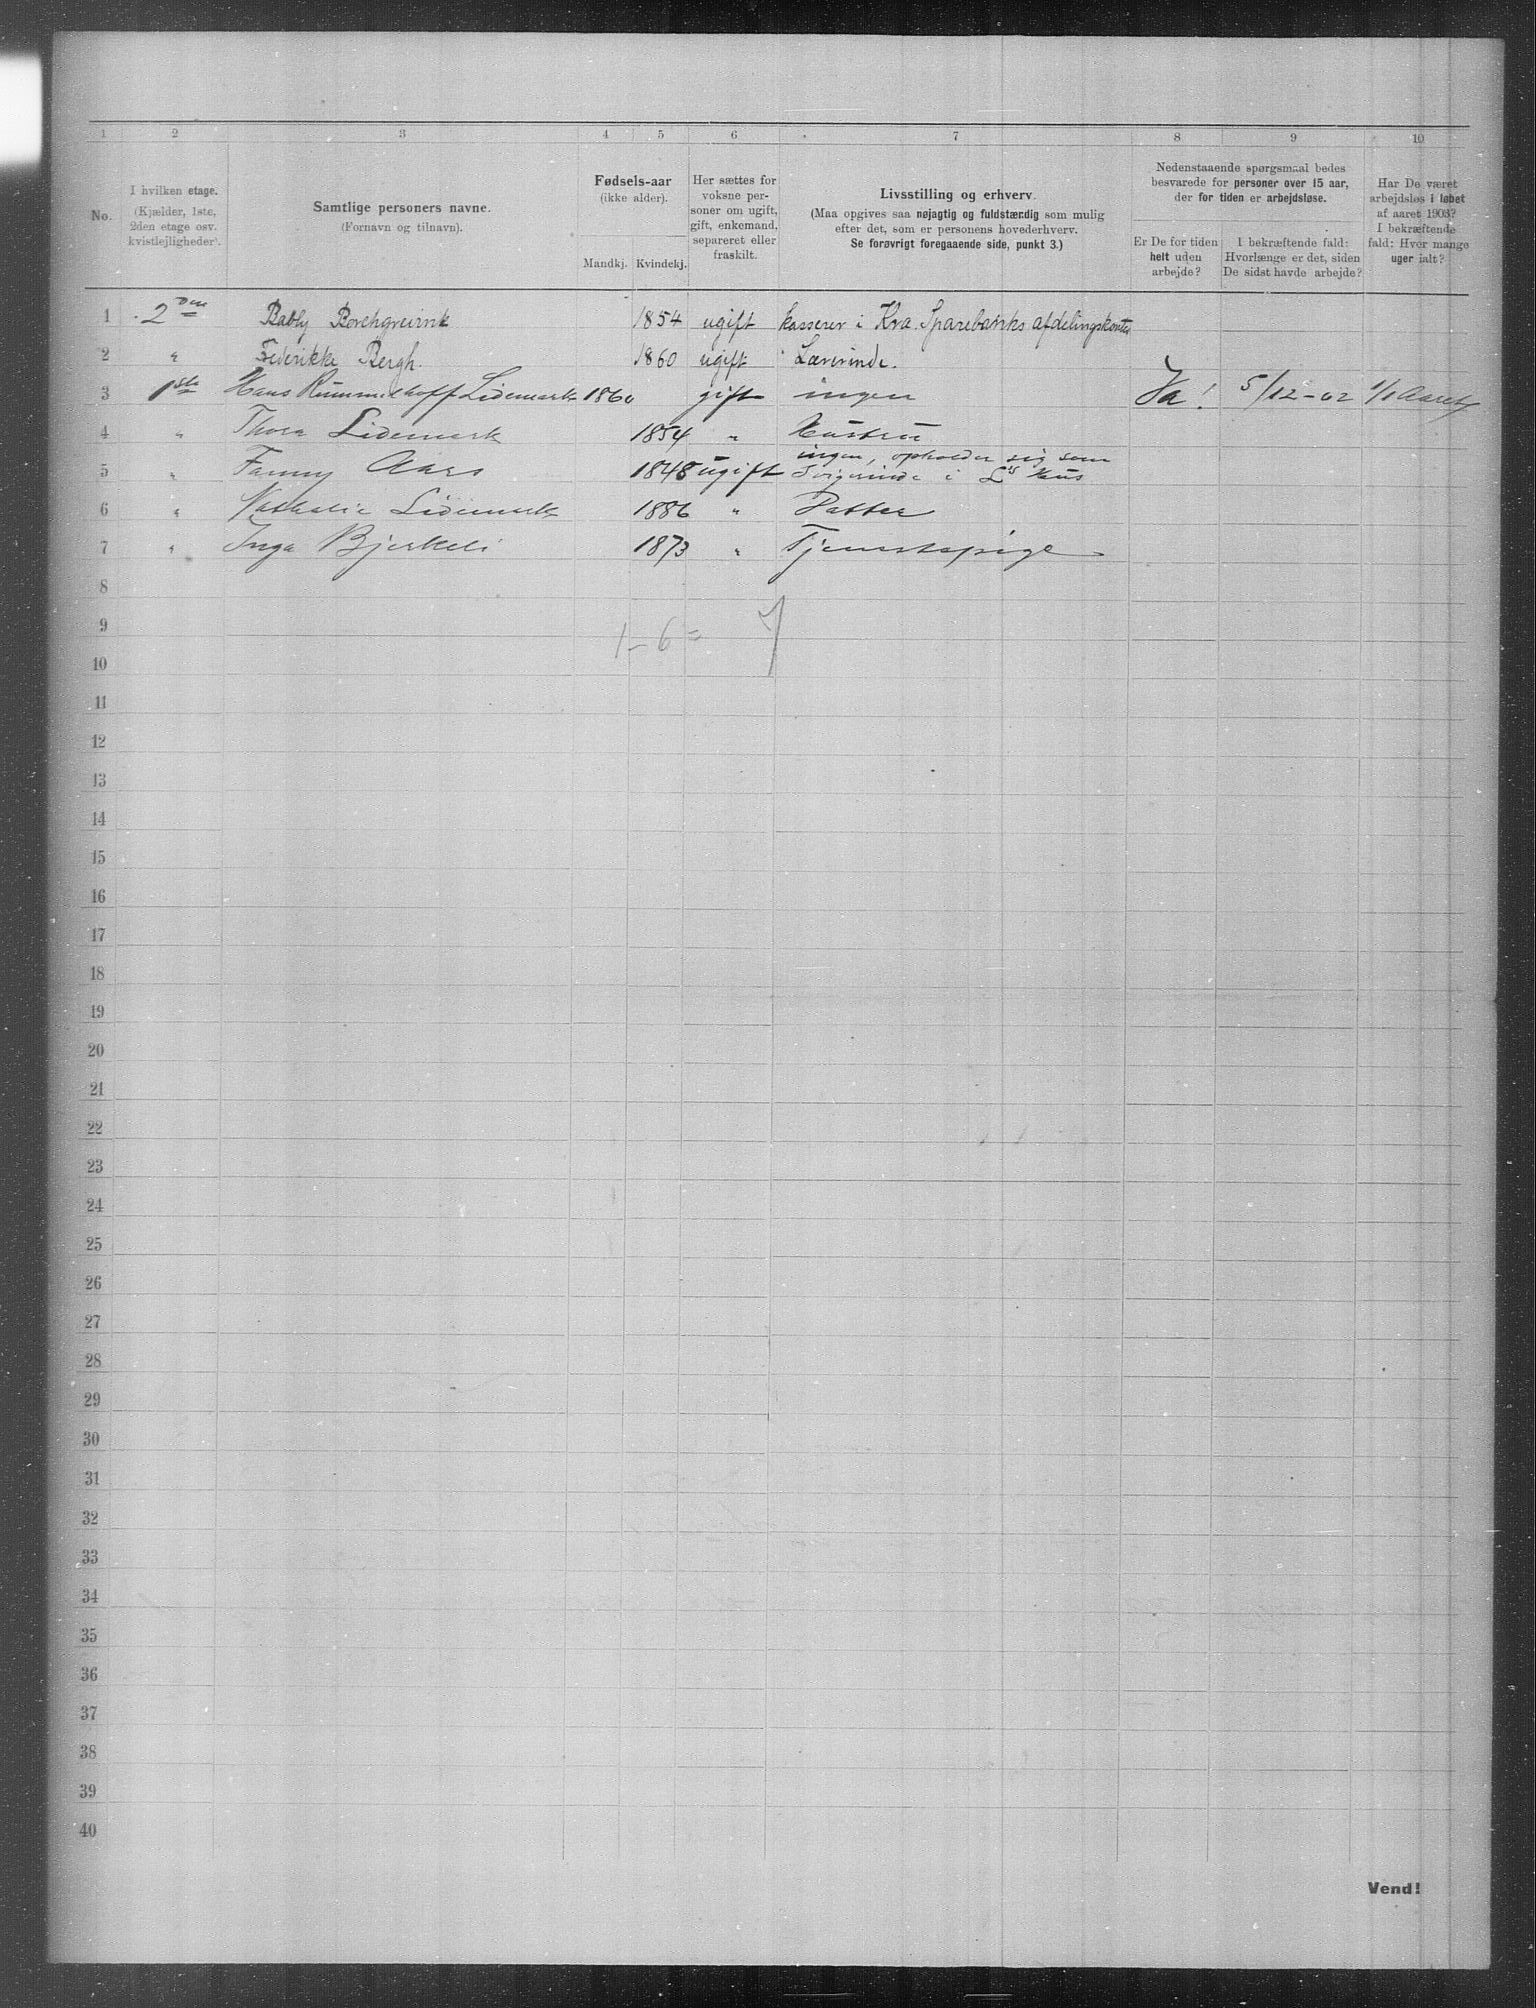 1 2 3 4 5 6 7 8 9 10
No.
I hvilken etage.
(Kjælder, 1ste, 2den etage osv. kvistlejligheder).
Samtlige personers navne.
(Fornavn og tilnavn).
Fødsels-aar
(ikke alder).
Mandkj. Kvindekj.
Her sættes for voksne personer om ugift, gift, enkemand, separeret eller fraskilt.
Livsstilling og erhverv.
(Maa opgives saa nøjagtig og fuldstærdig som mulig efter det, som er personens hovederhverv.
Se forøvrigt foregaaende side, punkt 3.)
Nedenstaaende spørgsmaal bedes besvarede for personer over 15 aar, der for tiden er arbejdsløse.
Er De for tiden helt uden arbejde?
I bekræftende fald: Hvorlænge er det, siden De sidst havde arbejde?
Har De været arbejdsløs i løbet af aaret 1903? I bekræftende fald: Hvor mange uger ialt?
1 2den Bably Borchgrevink 1854 ugift kasserer i Kra. Sparebanks afdelingskontor
2 " Frederikke Bergh. 1860 ugift Lærerinde.
3 1ste Hans Rummelhoff Lidemark 1860 gift ingen Ja! 5/12-02 1/1 Aaret
4 " Thora Lidemark 1854 " Hustru
5 " Fanny Aars 1848 ugift ingen, opholder sig som Svigerinde i L's Hus
6 " Nathalie Lidemark 1886 " Datter
7 " Inga Bjerkeli 1873 " Tjenestepige
8
9 1-6= 7
10
11
12
13
14
15
16
17
18
19
20
21
22
23
24
25
26
27
28
29
30
31
32
33
34
35
36
37
38
39
40
Vend!